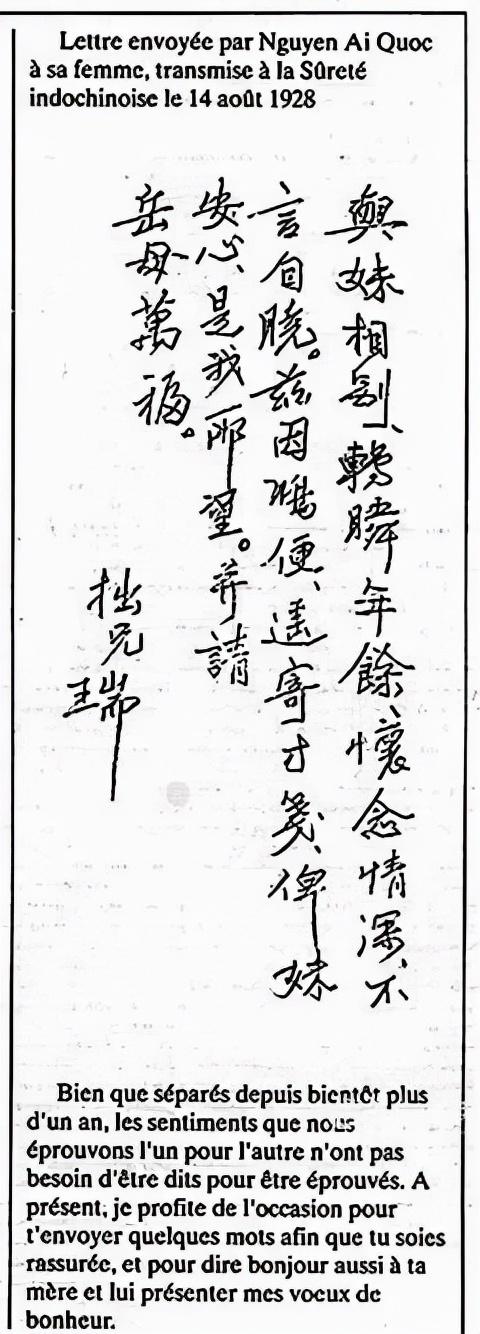 Lettre envoyée par Nguyen Ai Quoc
à sa femme, transmise à la Sûreté
indochinoise le 14 août 1928
與妹相別、轉瞬年餘、懷念情深、不
言自曉。茲因鴻便、遙寄寸箋、俾妹
安心、是我所望。並請
岳母萬福。
拙兄
瑞
Bien que séparés depuis bientôt plus
d'un an, les sentiments que nous
éprouvons l'un pour l'autre n'ont pas
besoin d'être dits pour être éprouvés. A
présent, je profite de l'occasion pour
t'envoyer quelques mots afin que tu sois
rassurée, et pour dire bonjour aussi à ta
mère et lui présenter mes voeux de
bonheur.